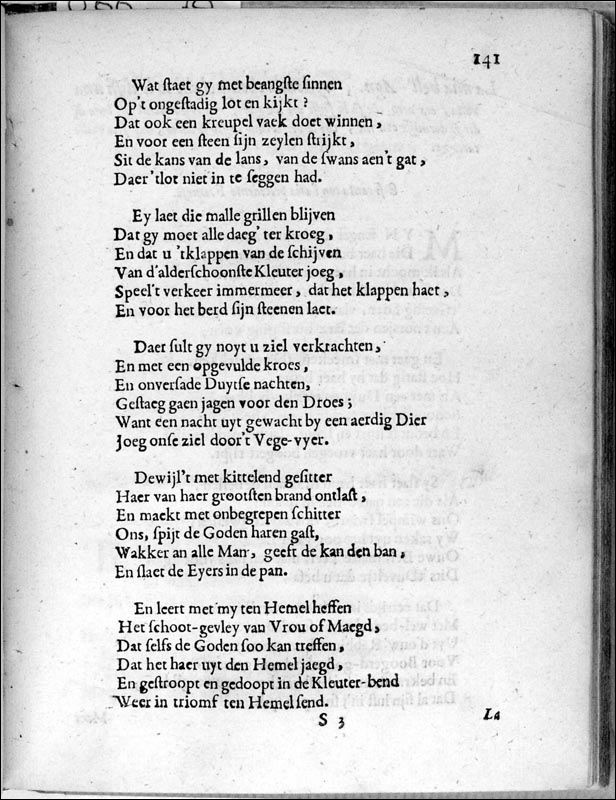 141
Wat staet gy met beangste sinnen
Op't ongestadig lot en kijkt ?
Dat ook een kreupel vaek doet winnen,
En voor een steen sijn zeylen strijkt,
Sit de kans van de lans, van de swans aen't gat,
Daer 'tlot niet in te seggen had.
Ey laet die malle grillen blijven
Dat gy moet alle daeg' ter kroeg,
En dat u 'tklappen van de schijven
Van d'alderschoonste Kleuter joeg,
Speel't verkeer immermeer, dat het klappen haet,
En voor het berd sijn steenen laet.
Daer sult gy noyt u ziel verkrachten,
En met een opgevulde kroes,
En onversade Duytse nachten,
Gestaeg gaen jagen voor den Droes;
Want een nacht uyt gewacht by een aerdig Dier
Joeg onse ziel door't Vege-vyer.
Dewijl't met kittelend gesitter
Haer van haer grootsten brand ontlast,
En maekt met onbegrepen schitter
Ons, spijt de Goden haren gast,
Wakker an alle Man, geeft de kan den ban,
En slaet de Eyers in de pan.
En leert met my ten Hemel heffen
Het schoot-gevley van Vrou of Maegd,
Dat selfs de Goden soo kan treffen,
Dat het haer uyt den Hemel jaegd,
En gestroopt en gedoopt in de Kleuter-bend
Weer in triomf ten Hemel send.
S 3
La